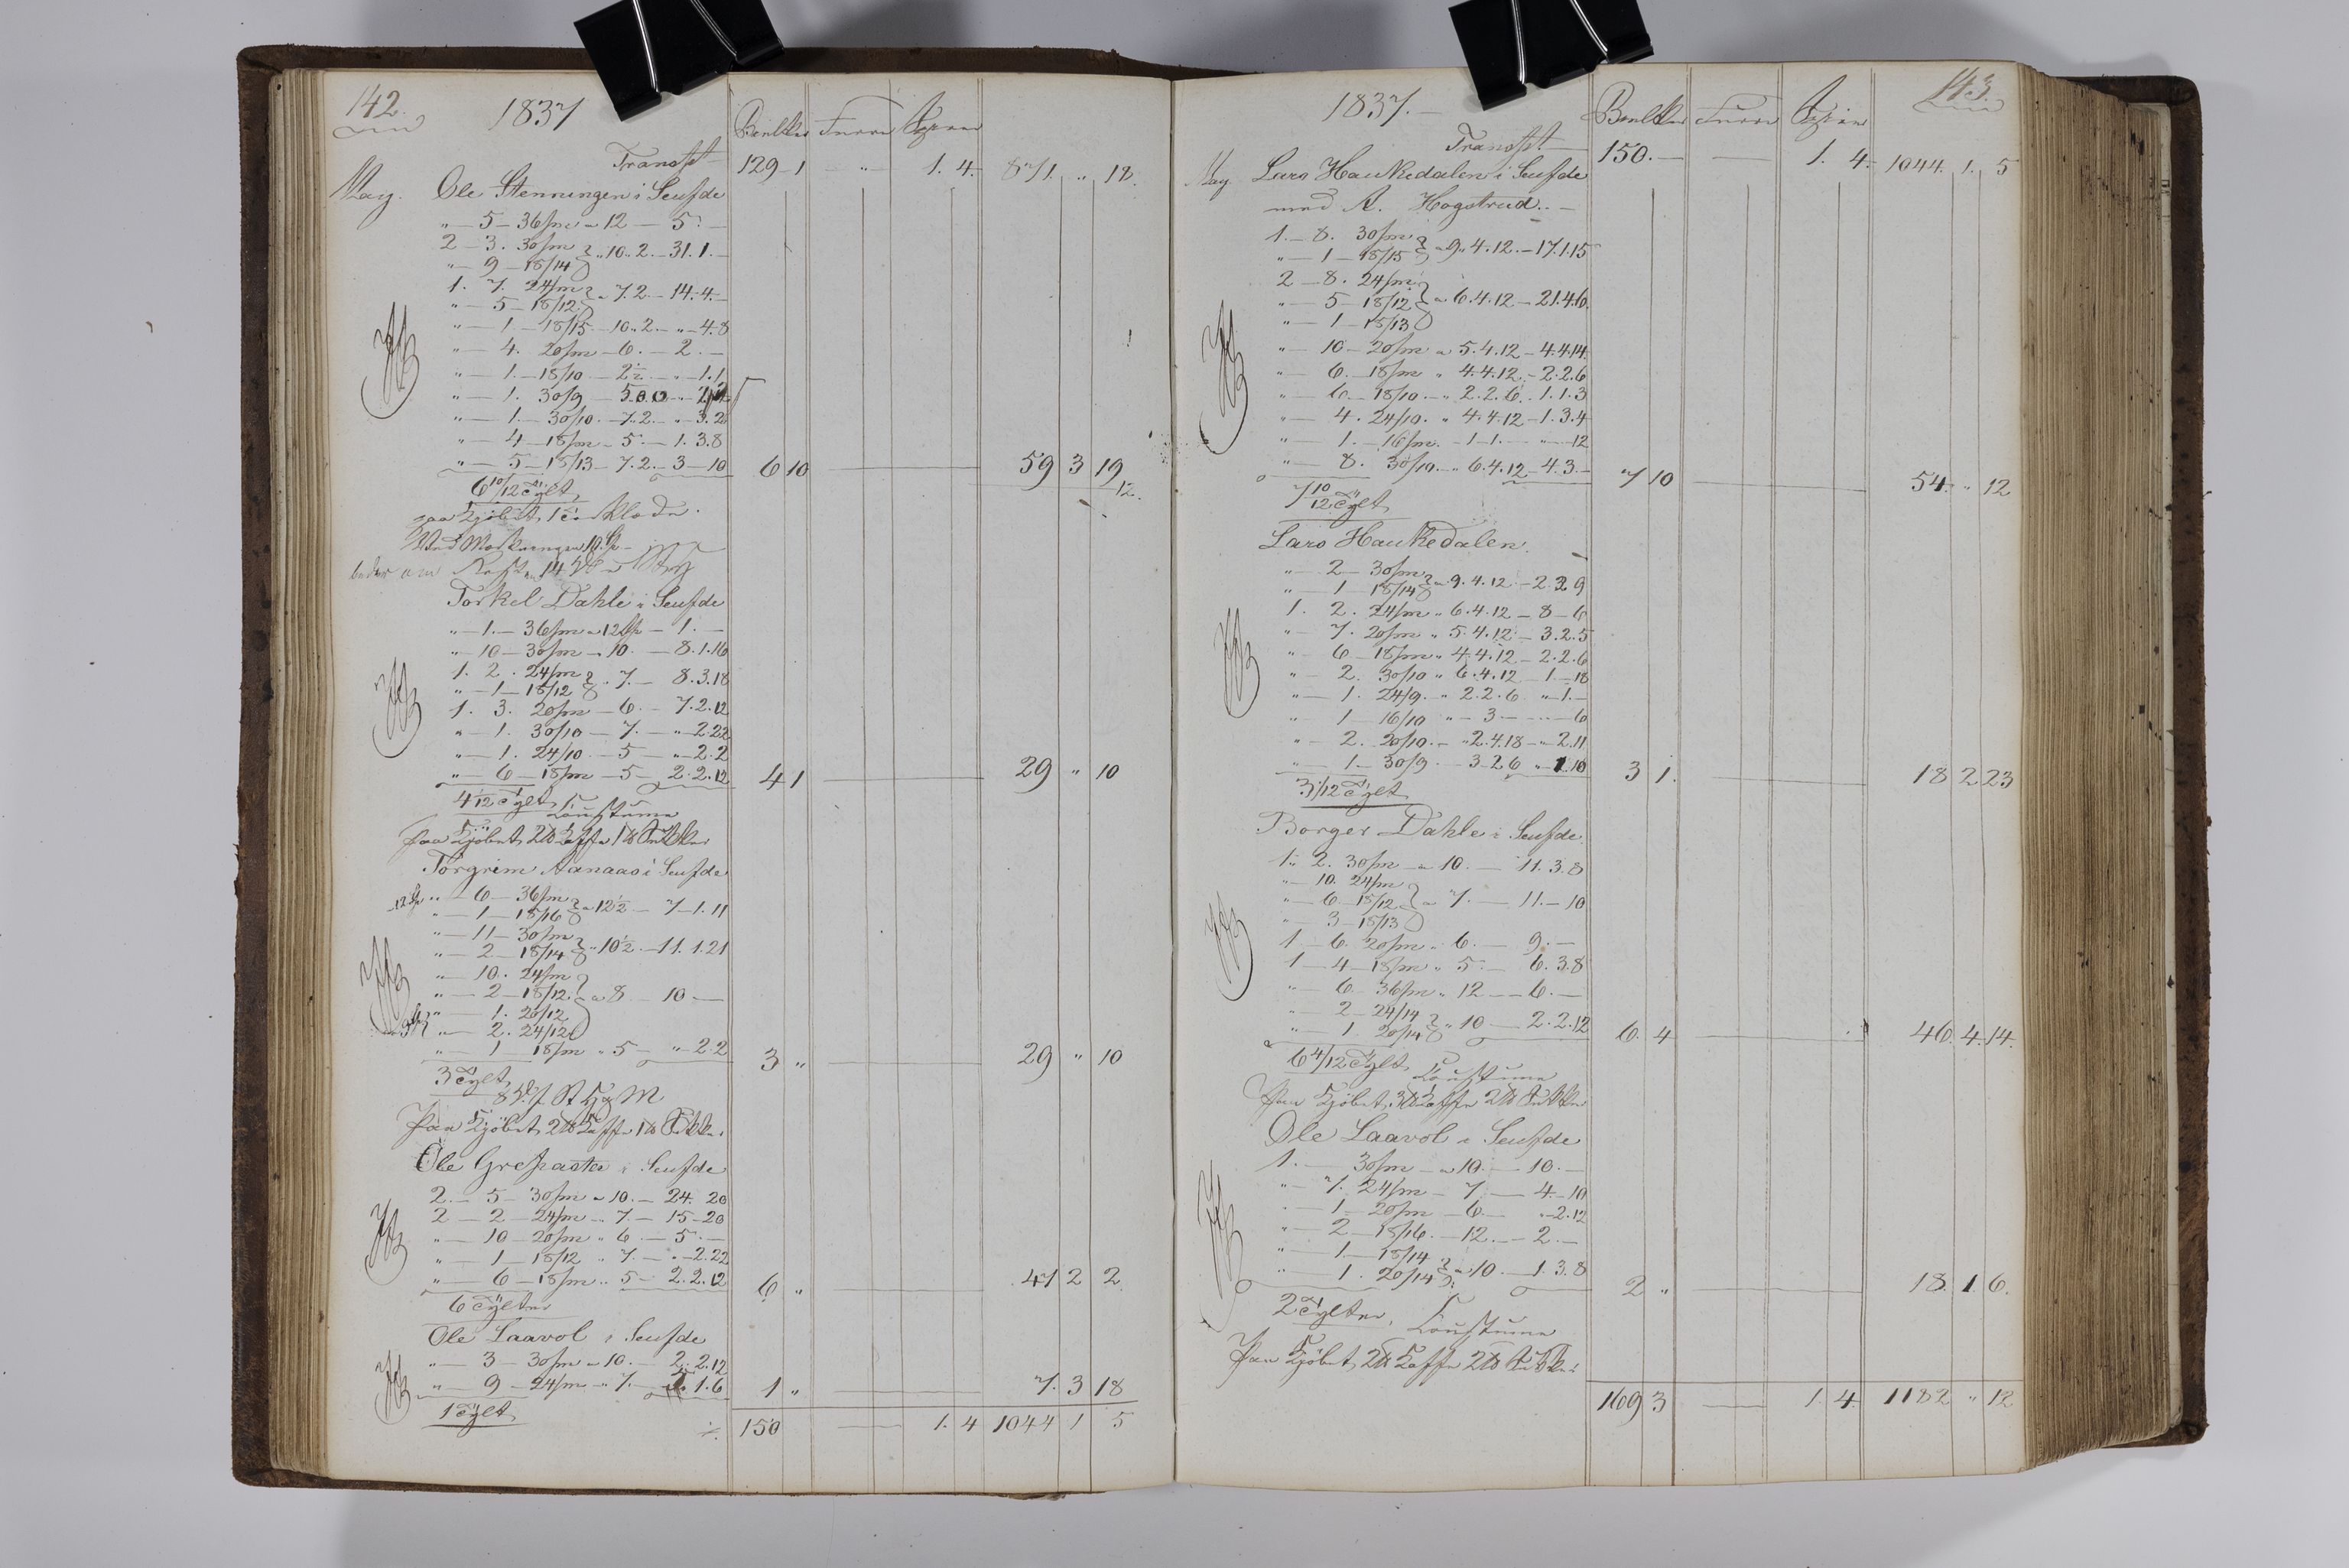 142.
1837
Furru
Transpt 129 1 " 1. 4. 871. " 12.
May. Ole Stenningen i Seufde
" — 5 — 36/m " 12 — 5. —
2 — 3. 30/m } " 10. 2. — 31. 1. —
" — 9 — 18/14
1. 7. 24/m } " 7. 2 — 14. 4. —
" — 5 — 18/12
" — 1 — 18/15 — 10. 2. — " — 4. 8
" — 4. 20/m — 6. — 2. —
" — 1. — 18/10 — 2½ — " — 1. 1
" — 1. 30/9
" — 1. 30/10. — 7. 2. — " 3. 2
" — 4 — 18/m — 5 — 1. 3. 8
" — 5 — 18/13 — 7. 2. — 3 — 10 6 10 59 3 19
12.
6 10/12 Tylt
Torkel Dahle i Seufde
" — 1. — 36/m " 12 — 1. —
" — 10 — 30/m — 10. — 8. 1. 16
1. 2. 24/m } " 7. — 8. 3. 18
" — 1 — 18/12
1. 3. 20/m — 6. — 7. 2. 12
" — 1. 30/10 — 7. — " — 2. 22
" — 1. 24/10 — 5 — " — 2. 2
" — 6 — 18/m — 5 — 2. 2. 12 4 1 29 " 10
4 1/12 Tylt
Paa Kjöbet 2 ℔ Kaffe 1 ℔ Sukker
Torgrim Aanaas i Seufde
" — 6 — 36/m } " 12½ — 7 — 1. 11
" — 1 — 18/16
" — 11 — 30/m } " 10½ — 11. 1. 21
" — 2 — 18/14
" — 10. 24/m
" — 2 — 18/12 } " 8 — 10 —
" — 1. 20/12
" — 2. 24/12
" — 1 — 18/m " 5 — " — 2. 2 3 " 29 " 10
3 Tylt
Paa Kjöbet 2 ℔ Kaffe 1 ℔ Sukker
Ole Grefaaster i Seufde
2. — 5 — 30/m " 10. — 24. 20
2 — 2 — 24/m " 7. — 15 — 20
" — 10 — 20/m " 6 — 5. —
" — 1 — 18/12 " 7. — " — 2. 22
" — 6 — 18/m " 5 — 2. 2. 12 6 " 41 2 2
6 Tylter
Ole Laavol i Seufde
" — 3 — 30/m " 10. — 2. 2. 12
" — 9 — 24/m " 7. — 5. 1. 6 1 " 7. 3 18
1 Tylt
150 1. 4 1044 1 5
143.
1837. —
Furru
Transpt — 150. — 1. 4. 1044. 1. 5
May. Lars Haukedalen i Seufde
med A. Hogstrud. —
1. — 8. 30/m } " 9. 4. 12. — 17. 1. 15
" — 1 — 18/15
2 — 8. 24/m
" — 5 — 18/12 } " 6. 4. 12 — 21. 4. 6.
" — 1 — 18/13
" — 10 — 20/m " 5. 4. 12 — 4. 4. 14.
" — 6. — 18/m " 4. 4. 12. — 2. 2. 6
" — 6 — 18/10 — " 2. 2. 6. 1. 1. 3
" — 4. 24/10. " 4. 4. 12 — 1. 3. 4
" — 1. — 16/m. — 1 — 1. — " — 12
" — 8. 30/10. — " 6. 4. 12 — 4. 3. — 7 10 54. " 12
7 10/12 Tylt
Lars Haukedalen.
" — 2 — 30/m } " 9. 4. 12. — 2. 3. 9
" — 1 18/14
1. 2. 24/m " 6. 4. 12 — 8 — 6
" — 7. 20/m " 5. 4. 12 — 3. 2. 5
" — 6 — 18/m " 4. 4. 12 — 2. 2. 6
" — 2. 30/10 " 6. 4. 12 — 1. — 18
" — 1. 24/9. — " 2. 2. 6 " — 1. —
" — 1 — 16/10 " — 3. — " — 6
" — 2. 20/10. — " 2. 4. 18 — " 2. 11
" — 1 — 30/9 — 3. 2. 6 " 1. 10 3 1. 18 2 23
3 1/12 Tylt
Borger Dahle i Seufde
1. 2. 30/m — " 10. — 11. 3. 8
" — 10. 24/m
" — 6 — 18/12 } " 7. — 11. — 10
" — 3 — 18/13
1 — 6. 20/m " 6. — 9. —
1 — 4 — 18/m " 5. — 6. 3. 8
" — 6 — 36/m " 12 — 6. —
" — 2 — 24/14 } " 10 — 2. 2. 12
" — 1. 20/14 6. 4 46. 4. 14.
6 4/12 Tylt
Paa Kjöbet 3 ℔ Kaffe 2 ℔ Sukker
Ole Laavol i Seufde
1. — 30/m — " 10. — 10. —
" — 7. 24/m — 7 — 4. — 10
" — 1 — 20/m — 6. — " — 2. 12
" — 2 — 18/16. — 12. — 2. —
" — 1 — 18/14 } " 10. — 1. 3. 8
" — 1. 20/14 2 " 18. 1 6.
2 Tylter
Paa Kjöbet 2 ℔ Kaffe 2 ℔ Sukker
169 3 1. 4. 1182 " 12